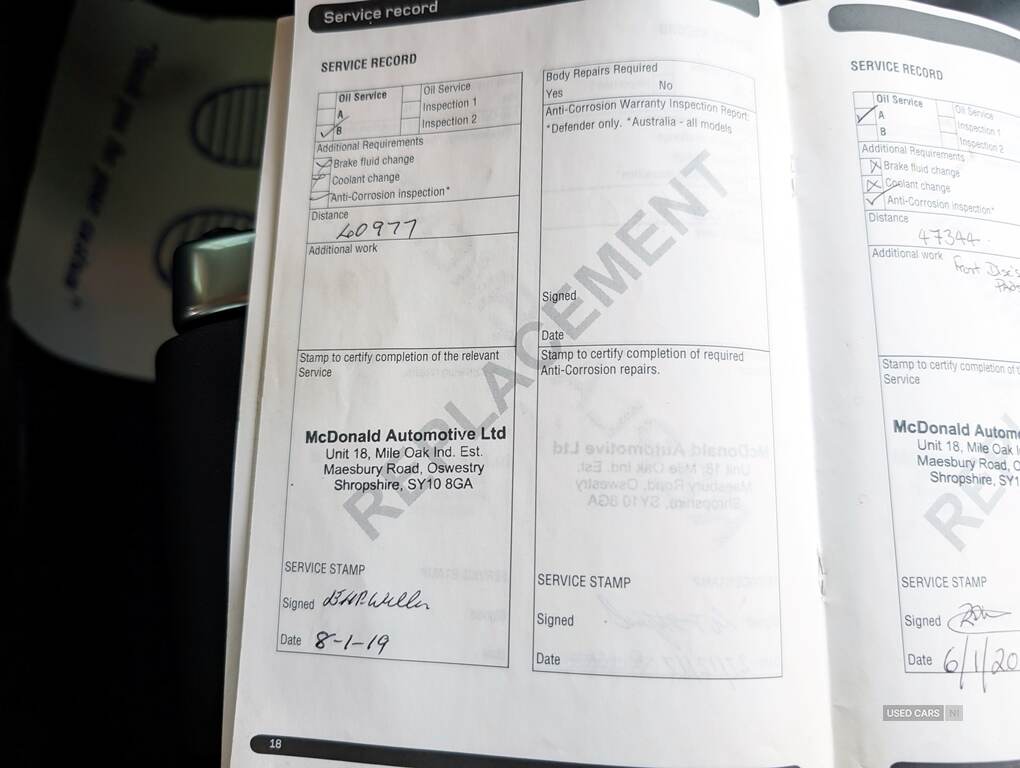 Service record
SERVICE RECORD
Oil Service
A
B
Oil Service
Inspection 1
Inspection 2
Additional Requirements
Brake fluid change
Coolant change
Anti-Corrosion inspection*
Distance
40977
Additional work
Stamp to certify completion of the relevant
Service
McDonald Automotive Ltd
Unit 18, Mile Oak Ind. Est.
Maesbury Road, Oswestry
Shropshire, SY10 8GA
SERVICE STAMP
Signed
Date 8-1-19
18
Body Repairs Required
Yes No
Anti-Corrosion Warranty Inspection Report:
*Defender only. *Australia - all models
Signed
Date
Stamp to certify completion of required
Anti-Corrosion repairs.
SERVICE STAMP
Signed
Date
REPLACEMENT
SERVICE RECORD
Oil Service
A
B
Oil Service
Inspection 1
Inspection 2
Additional Requirements
Brake fluid change
Coolant change
Anti-Corrosion inspection*
Distance
47344
Additional work Front Disc's
Stamp to certify completion of
Service
McDonald Autom
Unit 18, Mile Oak
Maesbury Road, O
Shropshire, SY1
SERVICE STAMP
Signed
Date 6/1/20
USED CARS NI